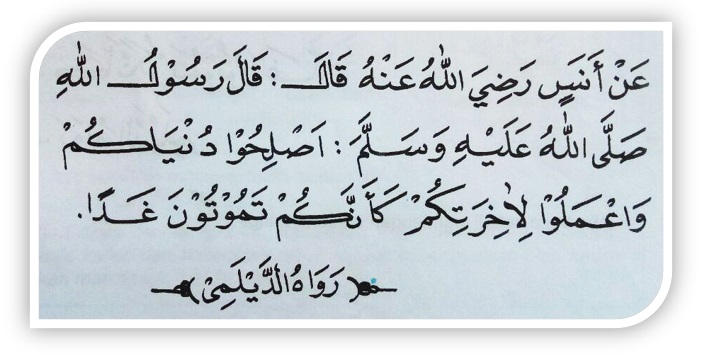 عَنْ أَنَسٍ رَضِيَ اللهُ عَنْهُ قَالَ : قَالَ رَسُوْلُ اللهِ
صَلَّى اللهُ عَلَيْهِ وَسَلَّمَ : اَصْلِحُوْا دُنْيَاكُمْ
وَاعْمَلُوْا لِاٰخِرَتِكُمْ كَأَنَّكُمْ تَمُوْتُوْنَ غَدًا.
(رَوَاهُ الدَّيْلَمِيْ)